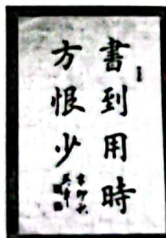 書到用時
方恨少